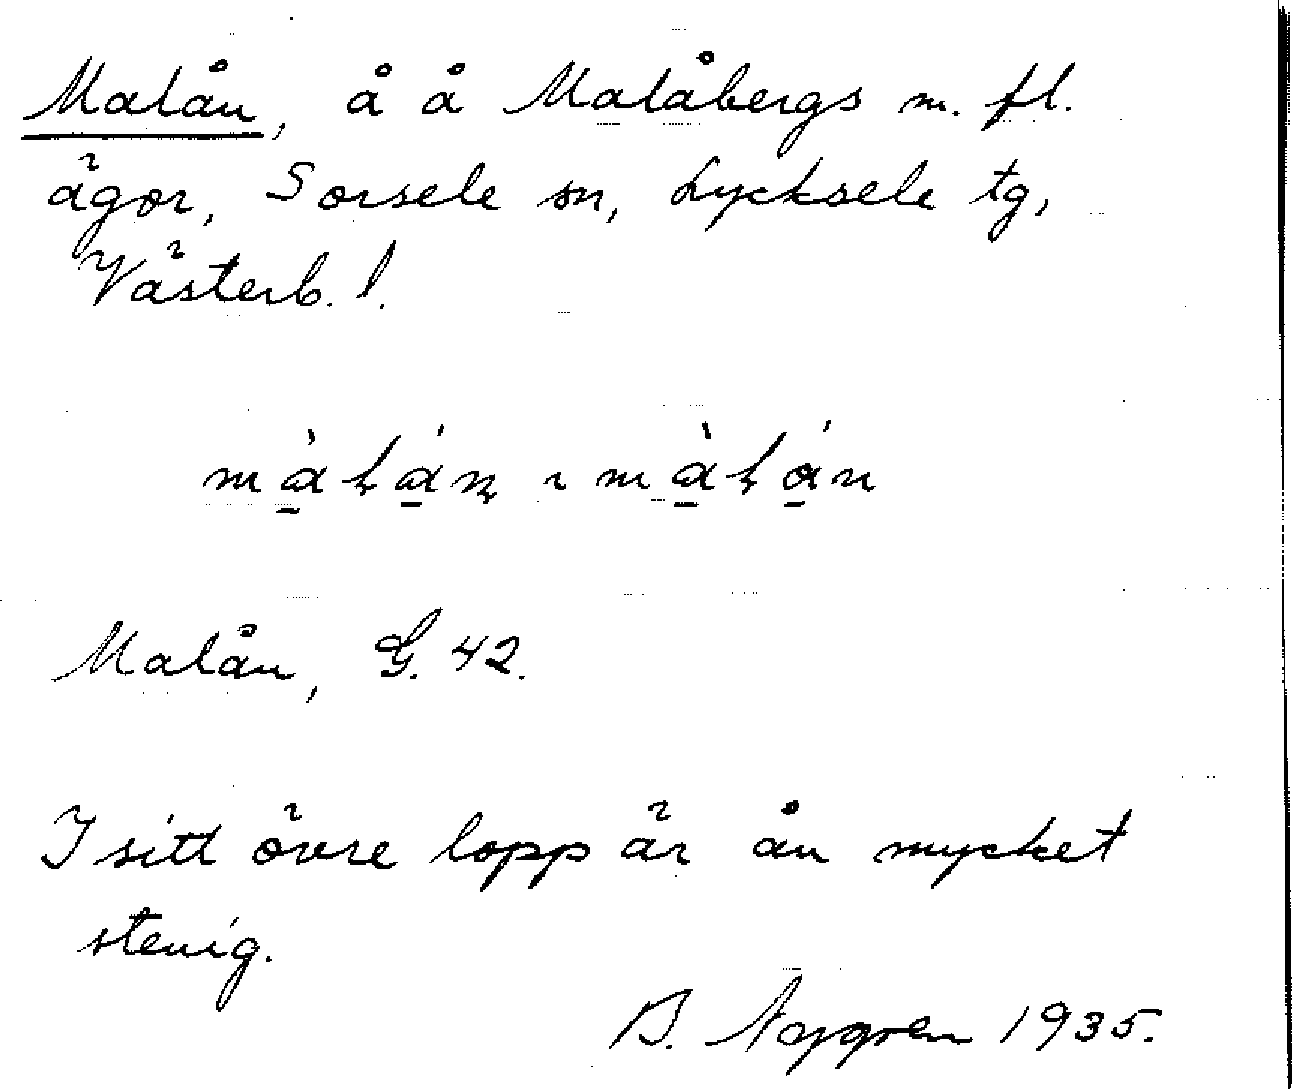 Malån, å å Malåbergs m. fl.
ägor, Sorsele sn, Lycksele tg,
Västerb. l.
Malån, G. 42.
I sitt övre lopp är ån mycket
stenig.
B. 1935.